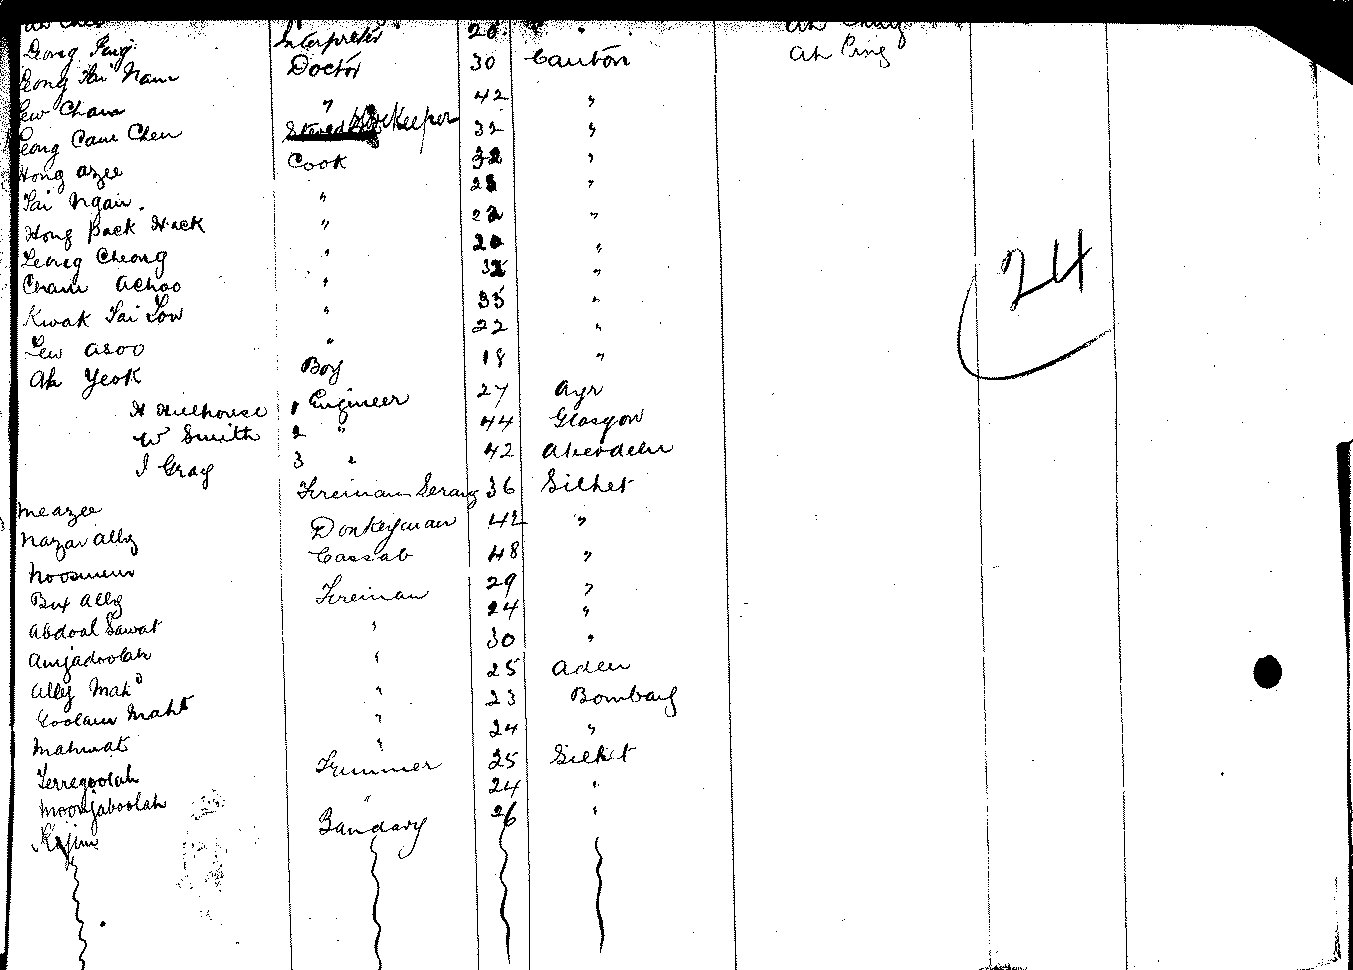 Ah Chay
Leong Ping Interpreter 28 " Ah Ping
Leong Tai Nam Doctor 30 Canton
Lew Cham " 42 "
Leong Cam Chen Storekeeper 32 "
Hong Azee Cook 32 "
Tai Ngan " 28 "
Hong Back Hack " 22 "
Leong Cheong " 20 "
Cham Achoo " 32 "
Kwak Tai Low " 35 "
Lew Asoo " 22 "
Ah Yeok Boy 18 "
H Hillhouse 1 Engineer 27 Ayr
W Smith 2 " 44 Glasgow
J Gray 3 " 42 Aberdeen
Meazee Fireman Serang 36 Silhet
Nazar Ally Donkeyman 42 "
Noosmeur Cassab 48 "
Bux Ally Fireman 29 "
Abdoal Sawat " 24 "
Amjadoolah " 30 "
Ally Mahd " 25 Aden
Goolam Mahd " 23 Bombay
Mahmat " 24 "
Terregoolah Trimmer 25 Silhet
Moonjaboolah " 24 "
Kajim Bandary 26 "
24